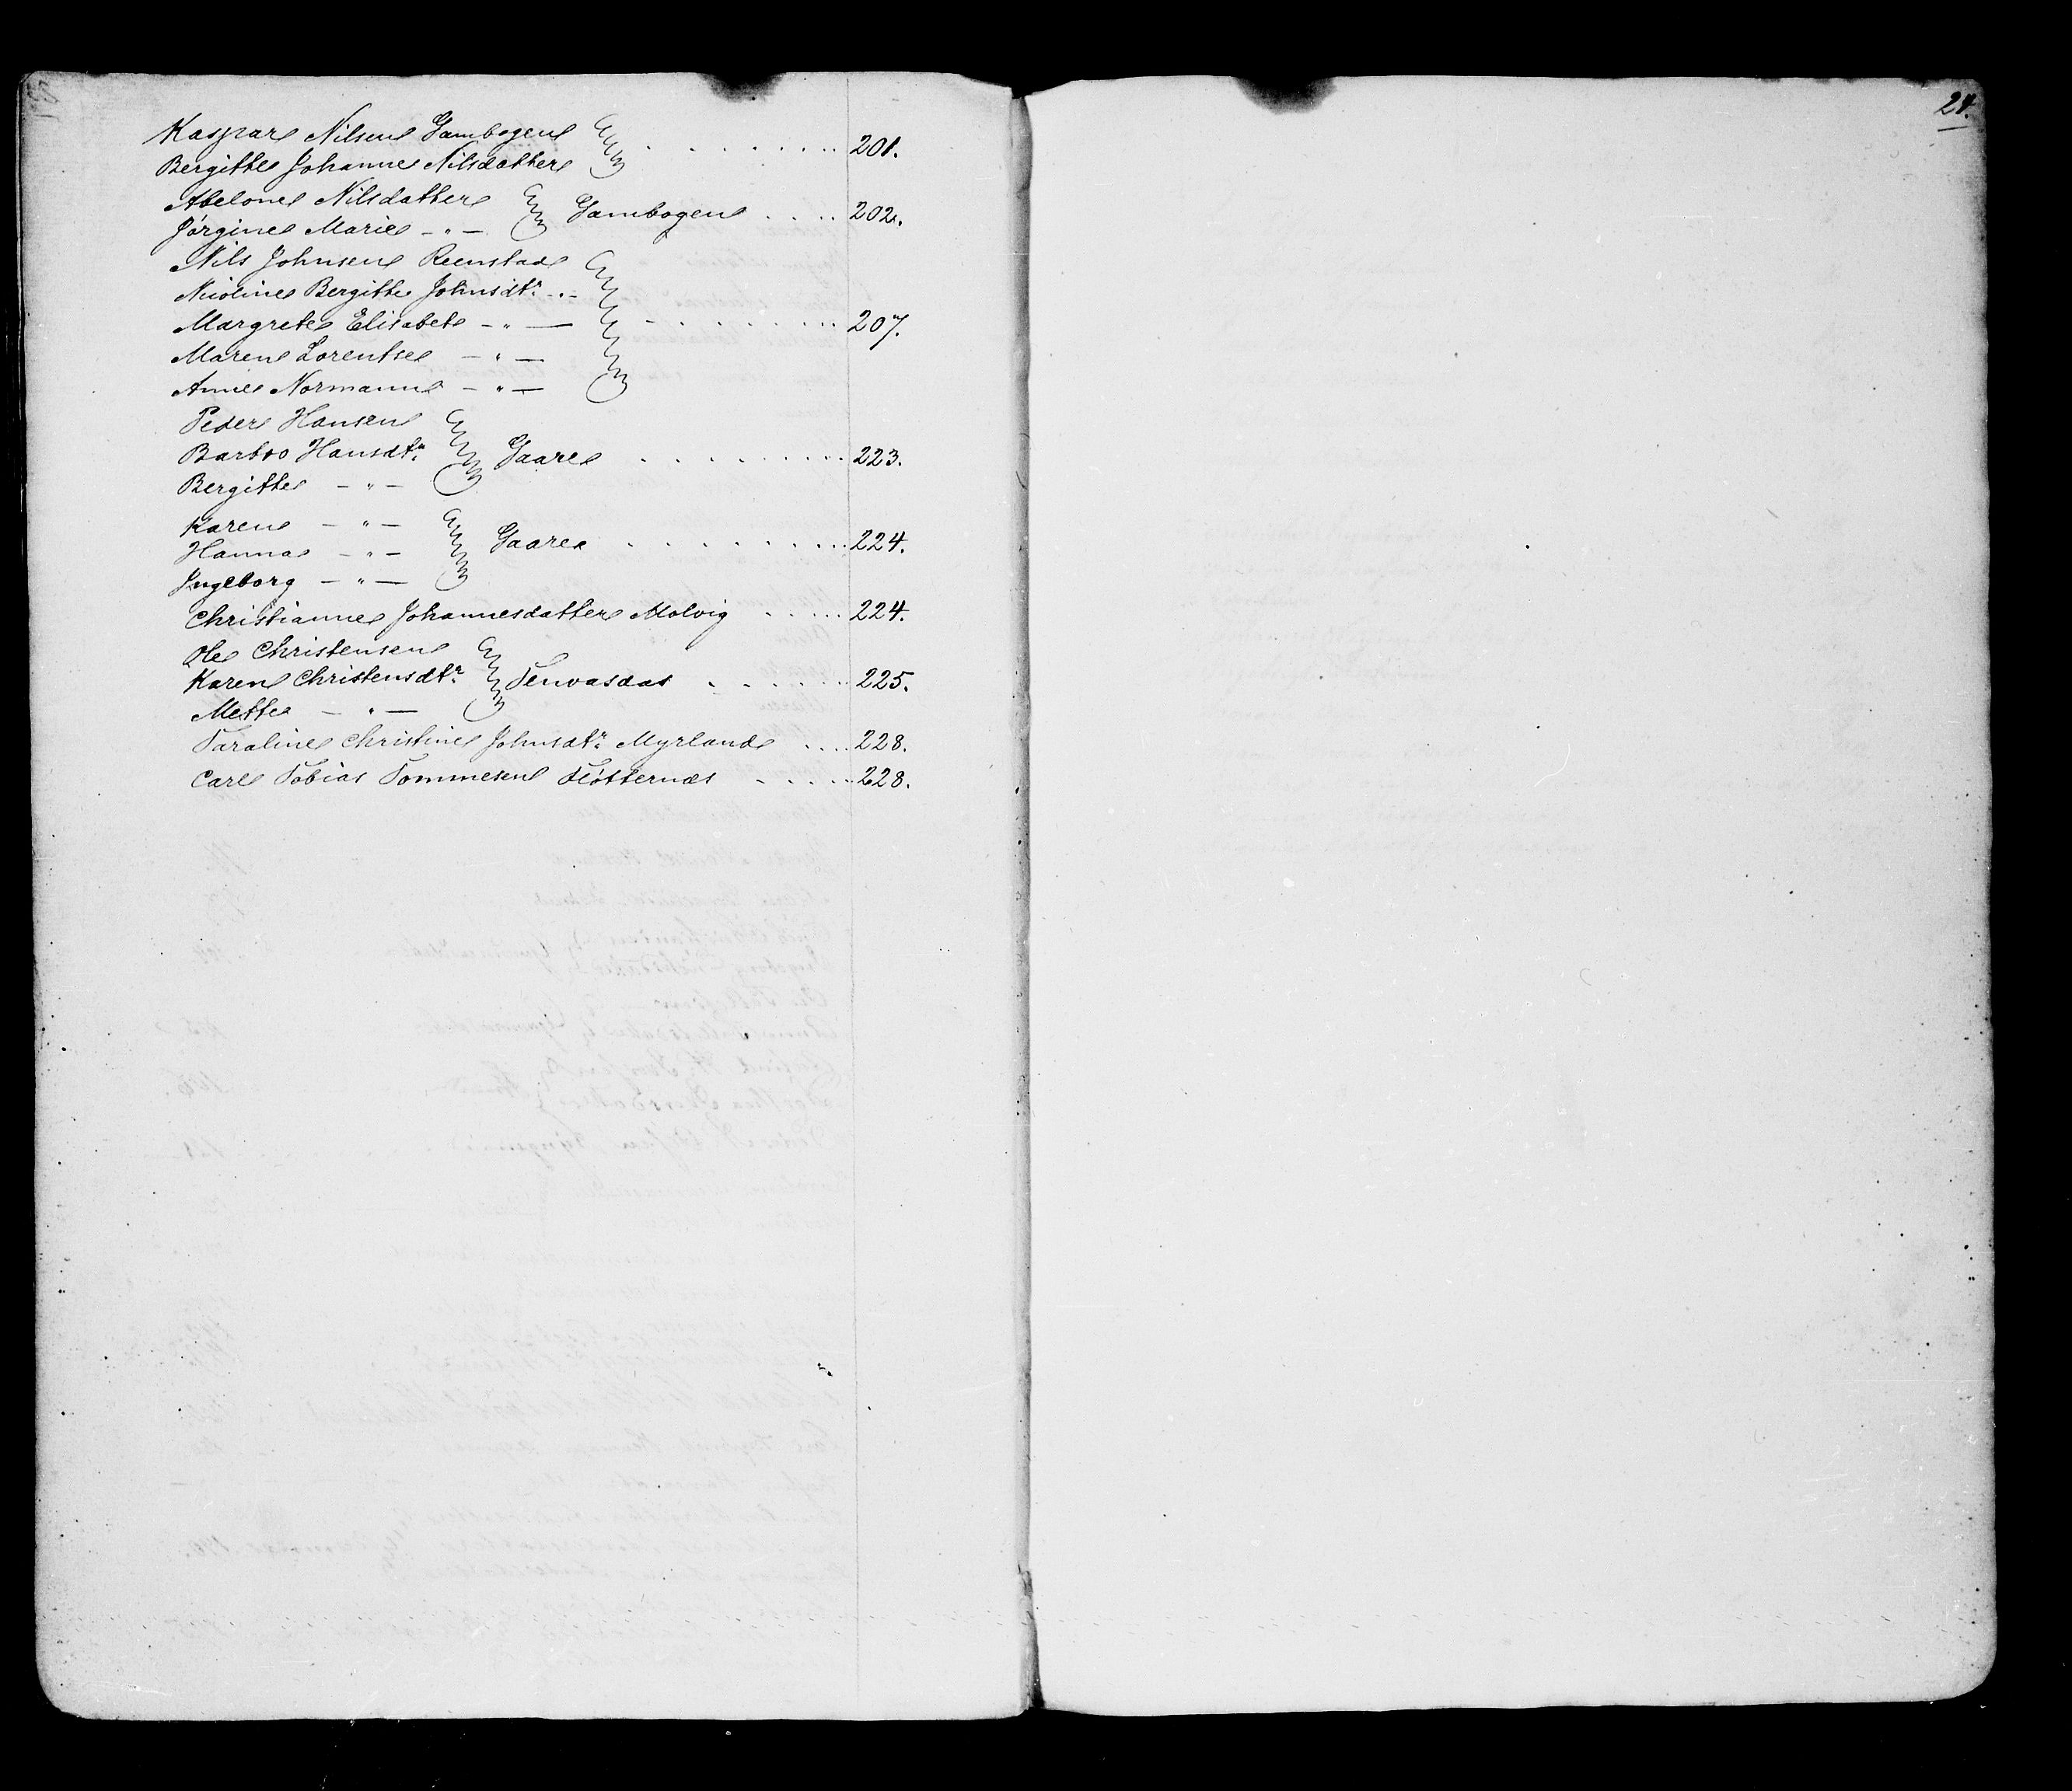 Kaspar Nilsen Gambogen
Bergitte Johanne Nilsdatter . . . . . . . . 201.
Abelone Nilsdatter
Jørgine Marie – " – Gambogen . . . . 202.
Nils Johnsen Reenstad
Nicoline Bergitte Johnsdtr. " –
Margrete Elisabet – " – . . . . . . . . 207.
Maren Lorentse – " –
Anne Normann – " –
Peder Hansen
Barbro Hansdtr. Gaare . . . . . . . . . 223.
Bergitte – " –
Karen – " –
Hanna – " – Gaare . . . . . . . . . 224.
Ingeborg – " –
Christianne Johannesdatter Molvig . . . . . 224.
Ole Christensen
Karen Christensdtr. Tenvasdas . . . . . . 225.
Mette – " –
Taraline Christine Johnsdtr. Myrland . . . . 228.
Carl Tobias Tommesen Fløtternæs . . . . . 228.
24.